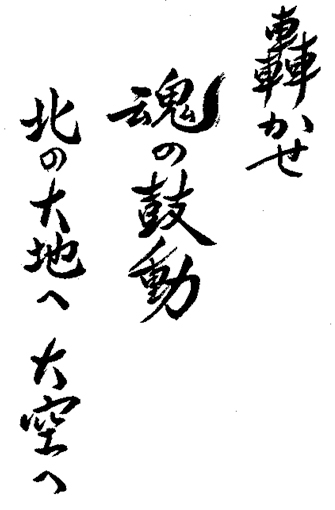 轟かせ
魂の鼓動
北の大地へ 大空へ